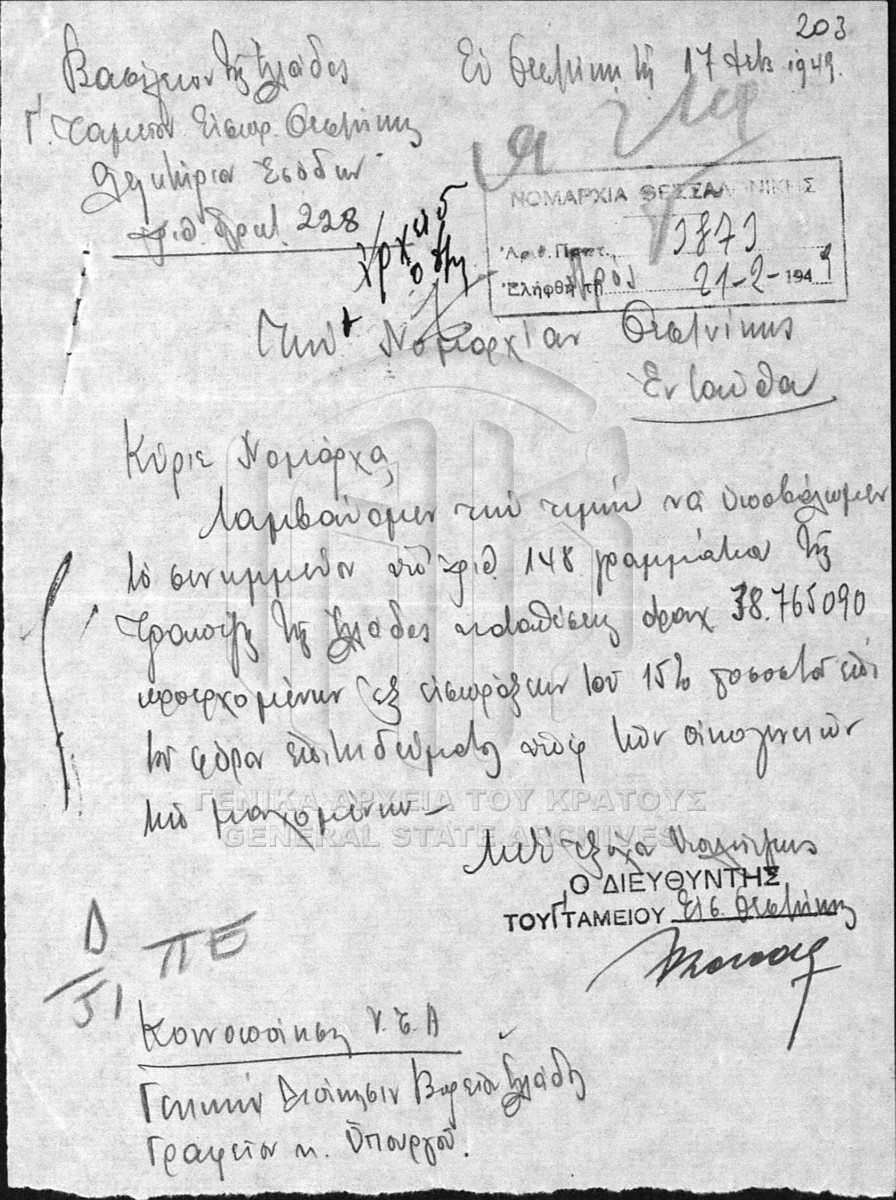 203
Βασίλειον της Ελλάδος
Εν Θεσ/νίκη τη 17 Φεβ 1949.
Γ. Ταμείον Εισπρ. Θεσ/νίκης
Λογιστήριον Εσόδων
Αριθ. Πρωτ. 228
ΝΟΜΑΡΧΙΑ ΘΕΣΣΑΛΟΝΙΚΗΣ
Ἀριθ. Πρωτ. 3873
Ἐλήφθη τῇ 21-2-1949
Προς
Την Νομαρχίαν Θεσ/νίκης
Ενταύθα
Κύριε Νομάρχα
Λαμβάνομεν την τιμήν να υποβάλωμεν
το συνημμένον υπ' αριθ. 148 γραμμάτιον της
Τραπέζης της Ελλάδος καταθέσεως δραχ 38.765090
προερχομένων εξ εισπράξεων του 15% ποσοστού επί
του φόρου επιτηδεύματος υπέρ των οικογενειών
των μαχομένων _
ΓΕΝΙΚΑ ΑΡΧΕΙΑ ΤΟΥ ΚΡΑΤΟΥΣ
GENERAL STATE ARCHIVES
Ο ΔΙΕΥΘΥΝΤΗΣ
ΤΟΥ Γ ΤΑΜΕΙΟΥ Εισ. Θεσ/νίκης
Δ ΠΕ
Κοινοποίησις
Γενικήν Διοίκησιν Βορείου Ελλάδος
Γραφείον κ. Υπουργού.